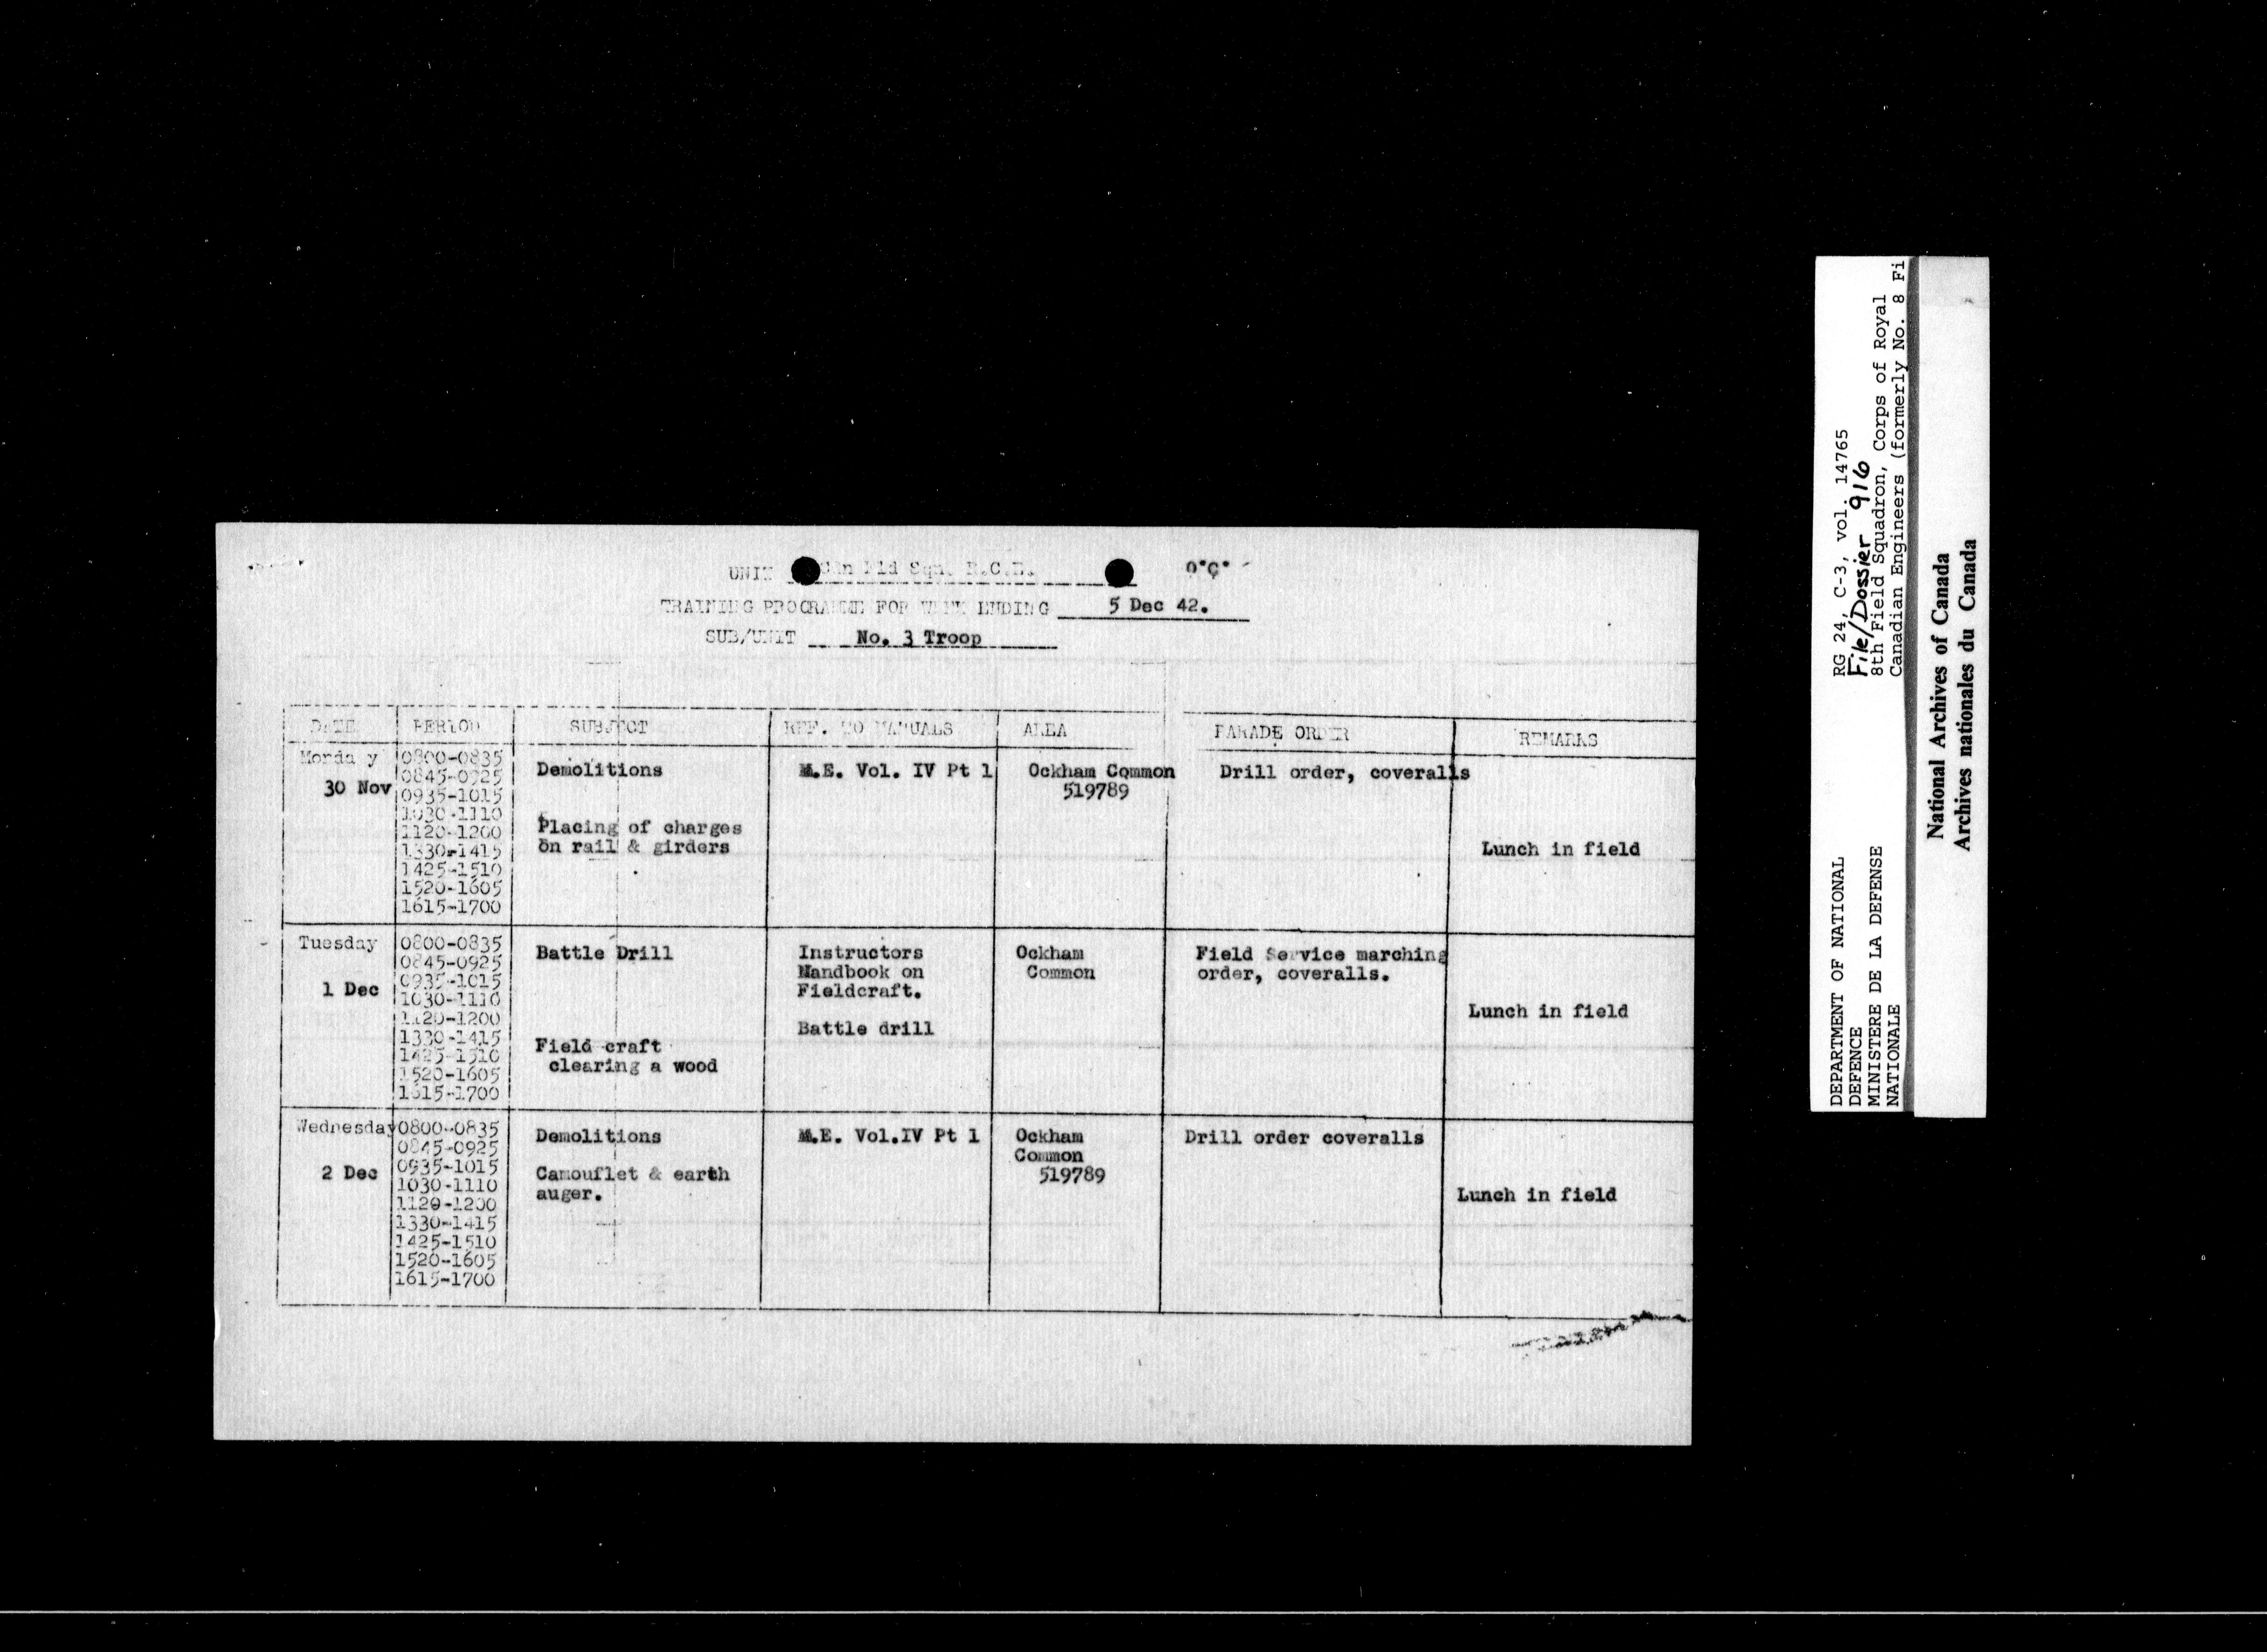 UNIT Cdn Fld Sqn. R.C.E.
TRAINING PROGRAMME FOR WEEK ENDING 5 Dec 42.
SUB/UNIT No. 3 Troop
DATE PERIOD SUBJECT REF. TO MANUALS AREA PARADE ORDER REMARKS
Monday
30 Nov
0800-0835
0845-0925
0935-1015
1030-1110
1120-1200
1330-1415
1425-1510
1520-1605
1615-1700
Demolitions
Placing of charges
on rail & girders
M.E. Vol. IV Pt 1
Ockham Common
519789
Drill order, coveralls
Lunch in field
Tuesday
1 Dec
0800-0835
0845-0925
0935-1015
1030-1110
1120-1200
1330-1415
1425-1510
1520-1605
1615-1700
Battle Drill
Field craft
clearing a wood
Instructors
Handbook on
Fieldcraft.
Battle drill
Ockham
Common
Field Service marching
order, coveralls.
Lunch in field
Wednesday
2 Dec
0800-0835
0845-0925
0935-1015
1030-1110
1120-1200
1330-1415
1425-1510
1520-1605
1615-1700
Demolitions
Camouflet & earth
auger.
M.E. Vol.IV Pt 1
Ockham
Common
519789
Drill order coveralls
Lunch in field
DEPARTMENT OF NATIONAL
DEFENCE
MINISTERE DE LA DEFENSE
NATIONALE
RG 24, C-3, vol. 14765
File/Dossier 916
8th Field Squadron, Corps of Royal
Canadian Engineers (formerly No. 8 Fi
National Archives of Canada
Archives nationales du Canada